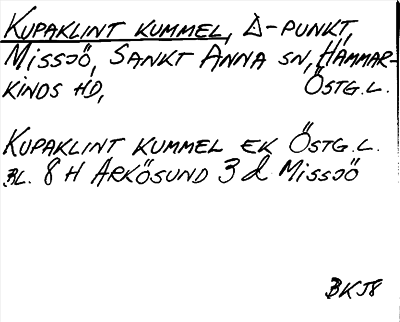 KUPAKLINT KUMMEL, Δ-PUNKT,
MISSJÖ, SANKT ANNA SN, HAMMAR-
KINDS HD, ÖSTG.L.
KUPAKLINT KUMMEL EK ÖSTG.L.
BL. 8 H ARKÖSUND 3 d MISSJÖ
BKJ8